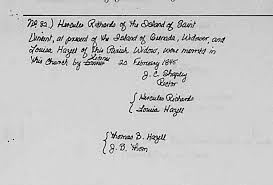 No 32.) Hercules Richards of the Island of Saint
Vincent, at present of the Island of Grenada, Widower, and
Louisa Hazell of this Parish Widow, were married in
this Church by 20 February 1845
J. C. Shapley
Rector
Hercules Richards
Louisa Hazell
Thomas B. Hazell
J. B. Thom